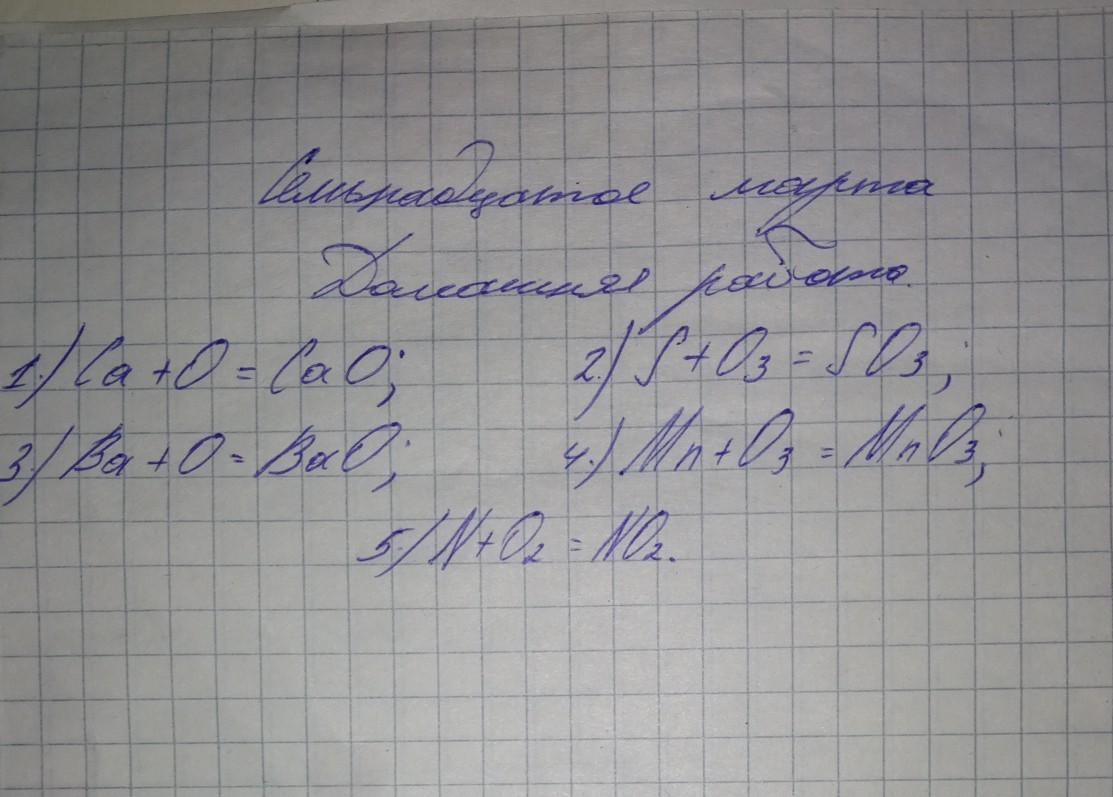 Семьнадцатое марта
Домашняя работа.
1.) Ca + O = CaO; 2.) S + O₃ = SO₃;
3.) Ba + O = BaO; 4.) Mn + O₃ = MnO₃;
5.) N + O₂ = NO₂.